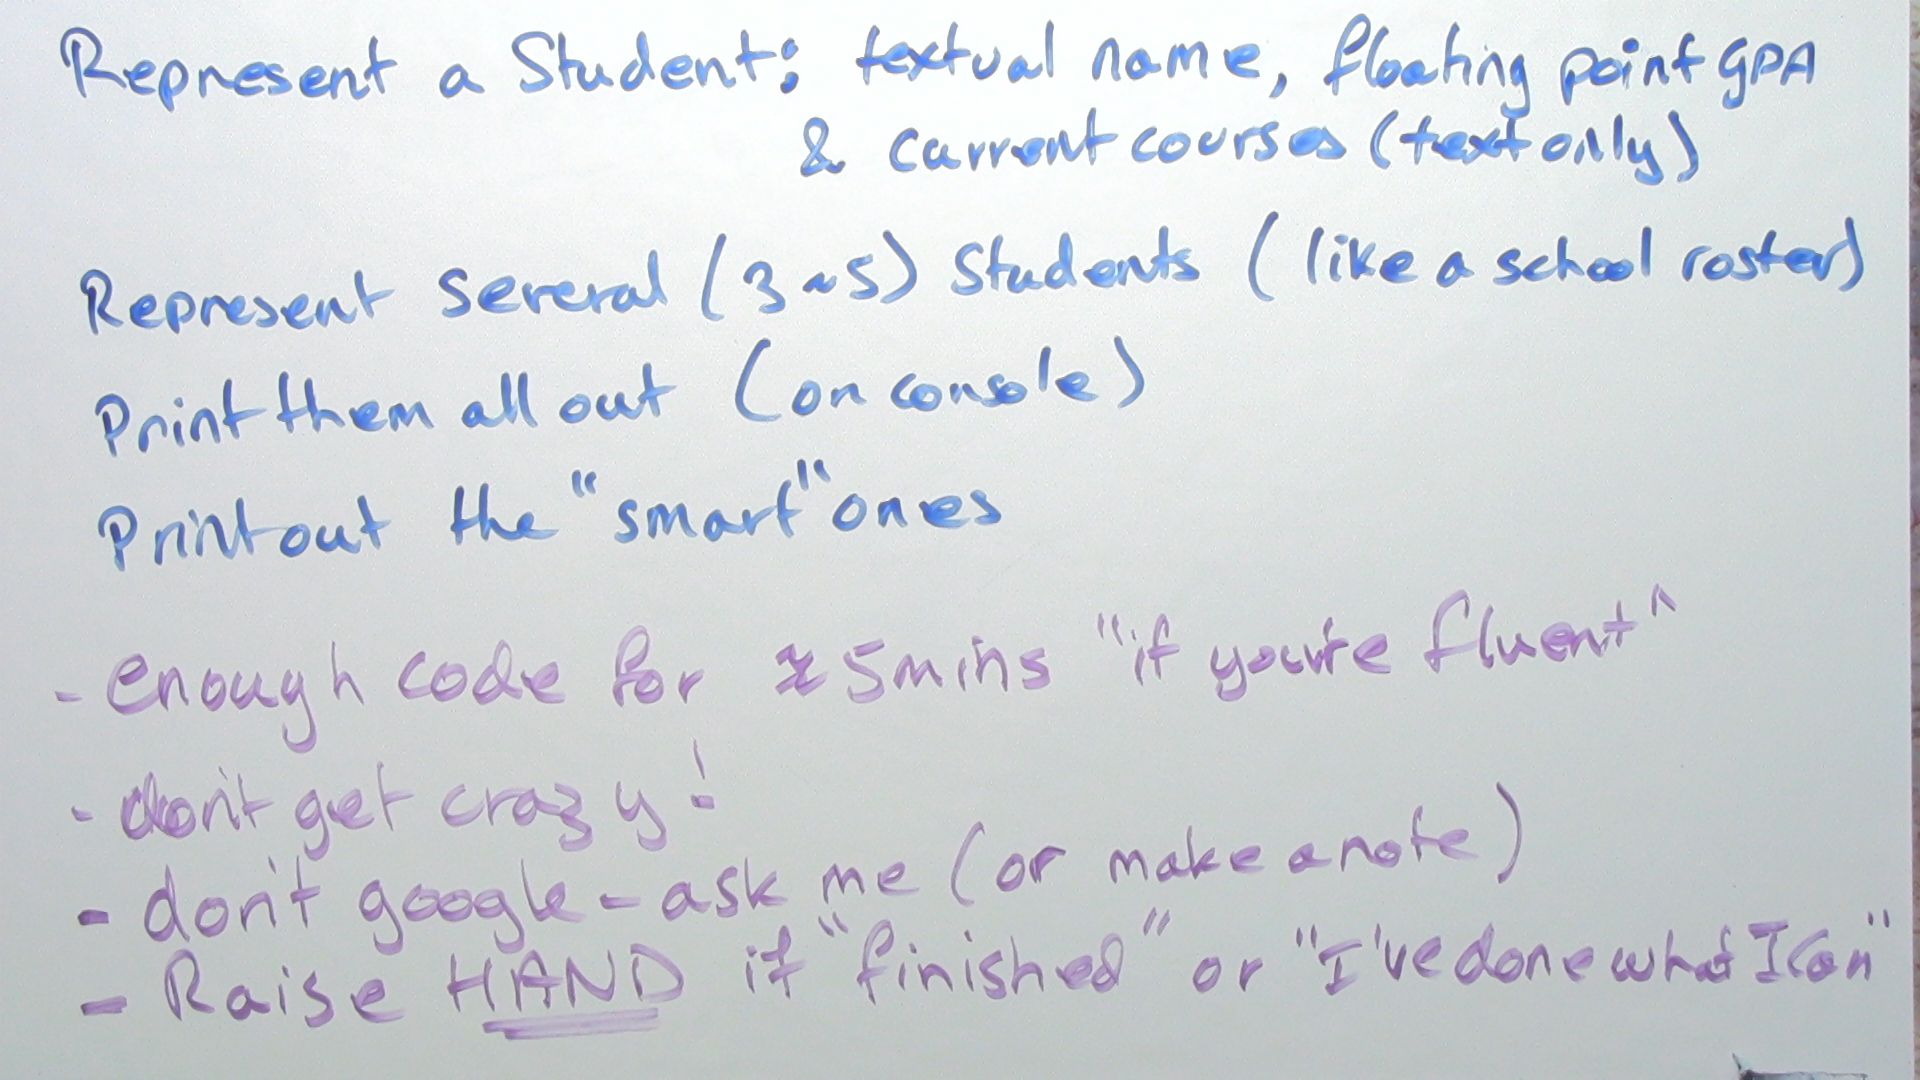 Represent a Student: textual name, floating point GPA
& current courses (text only)
Represent several (3~5) Students (like a school roster)
Print them all out (on console)
Print out the "smart" ones
- enough code for ≈5mins "if you're fluent"
- don't get crazy!
- don't google - ask me (or make a note)
- Raise HAND if "finished" or "I've done what I can"